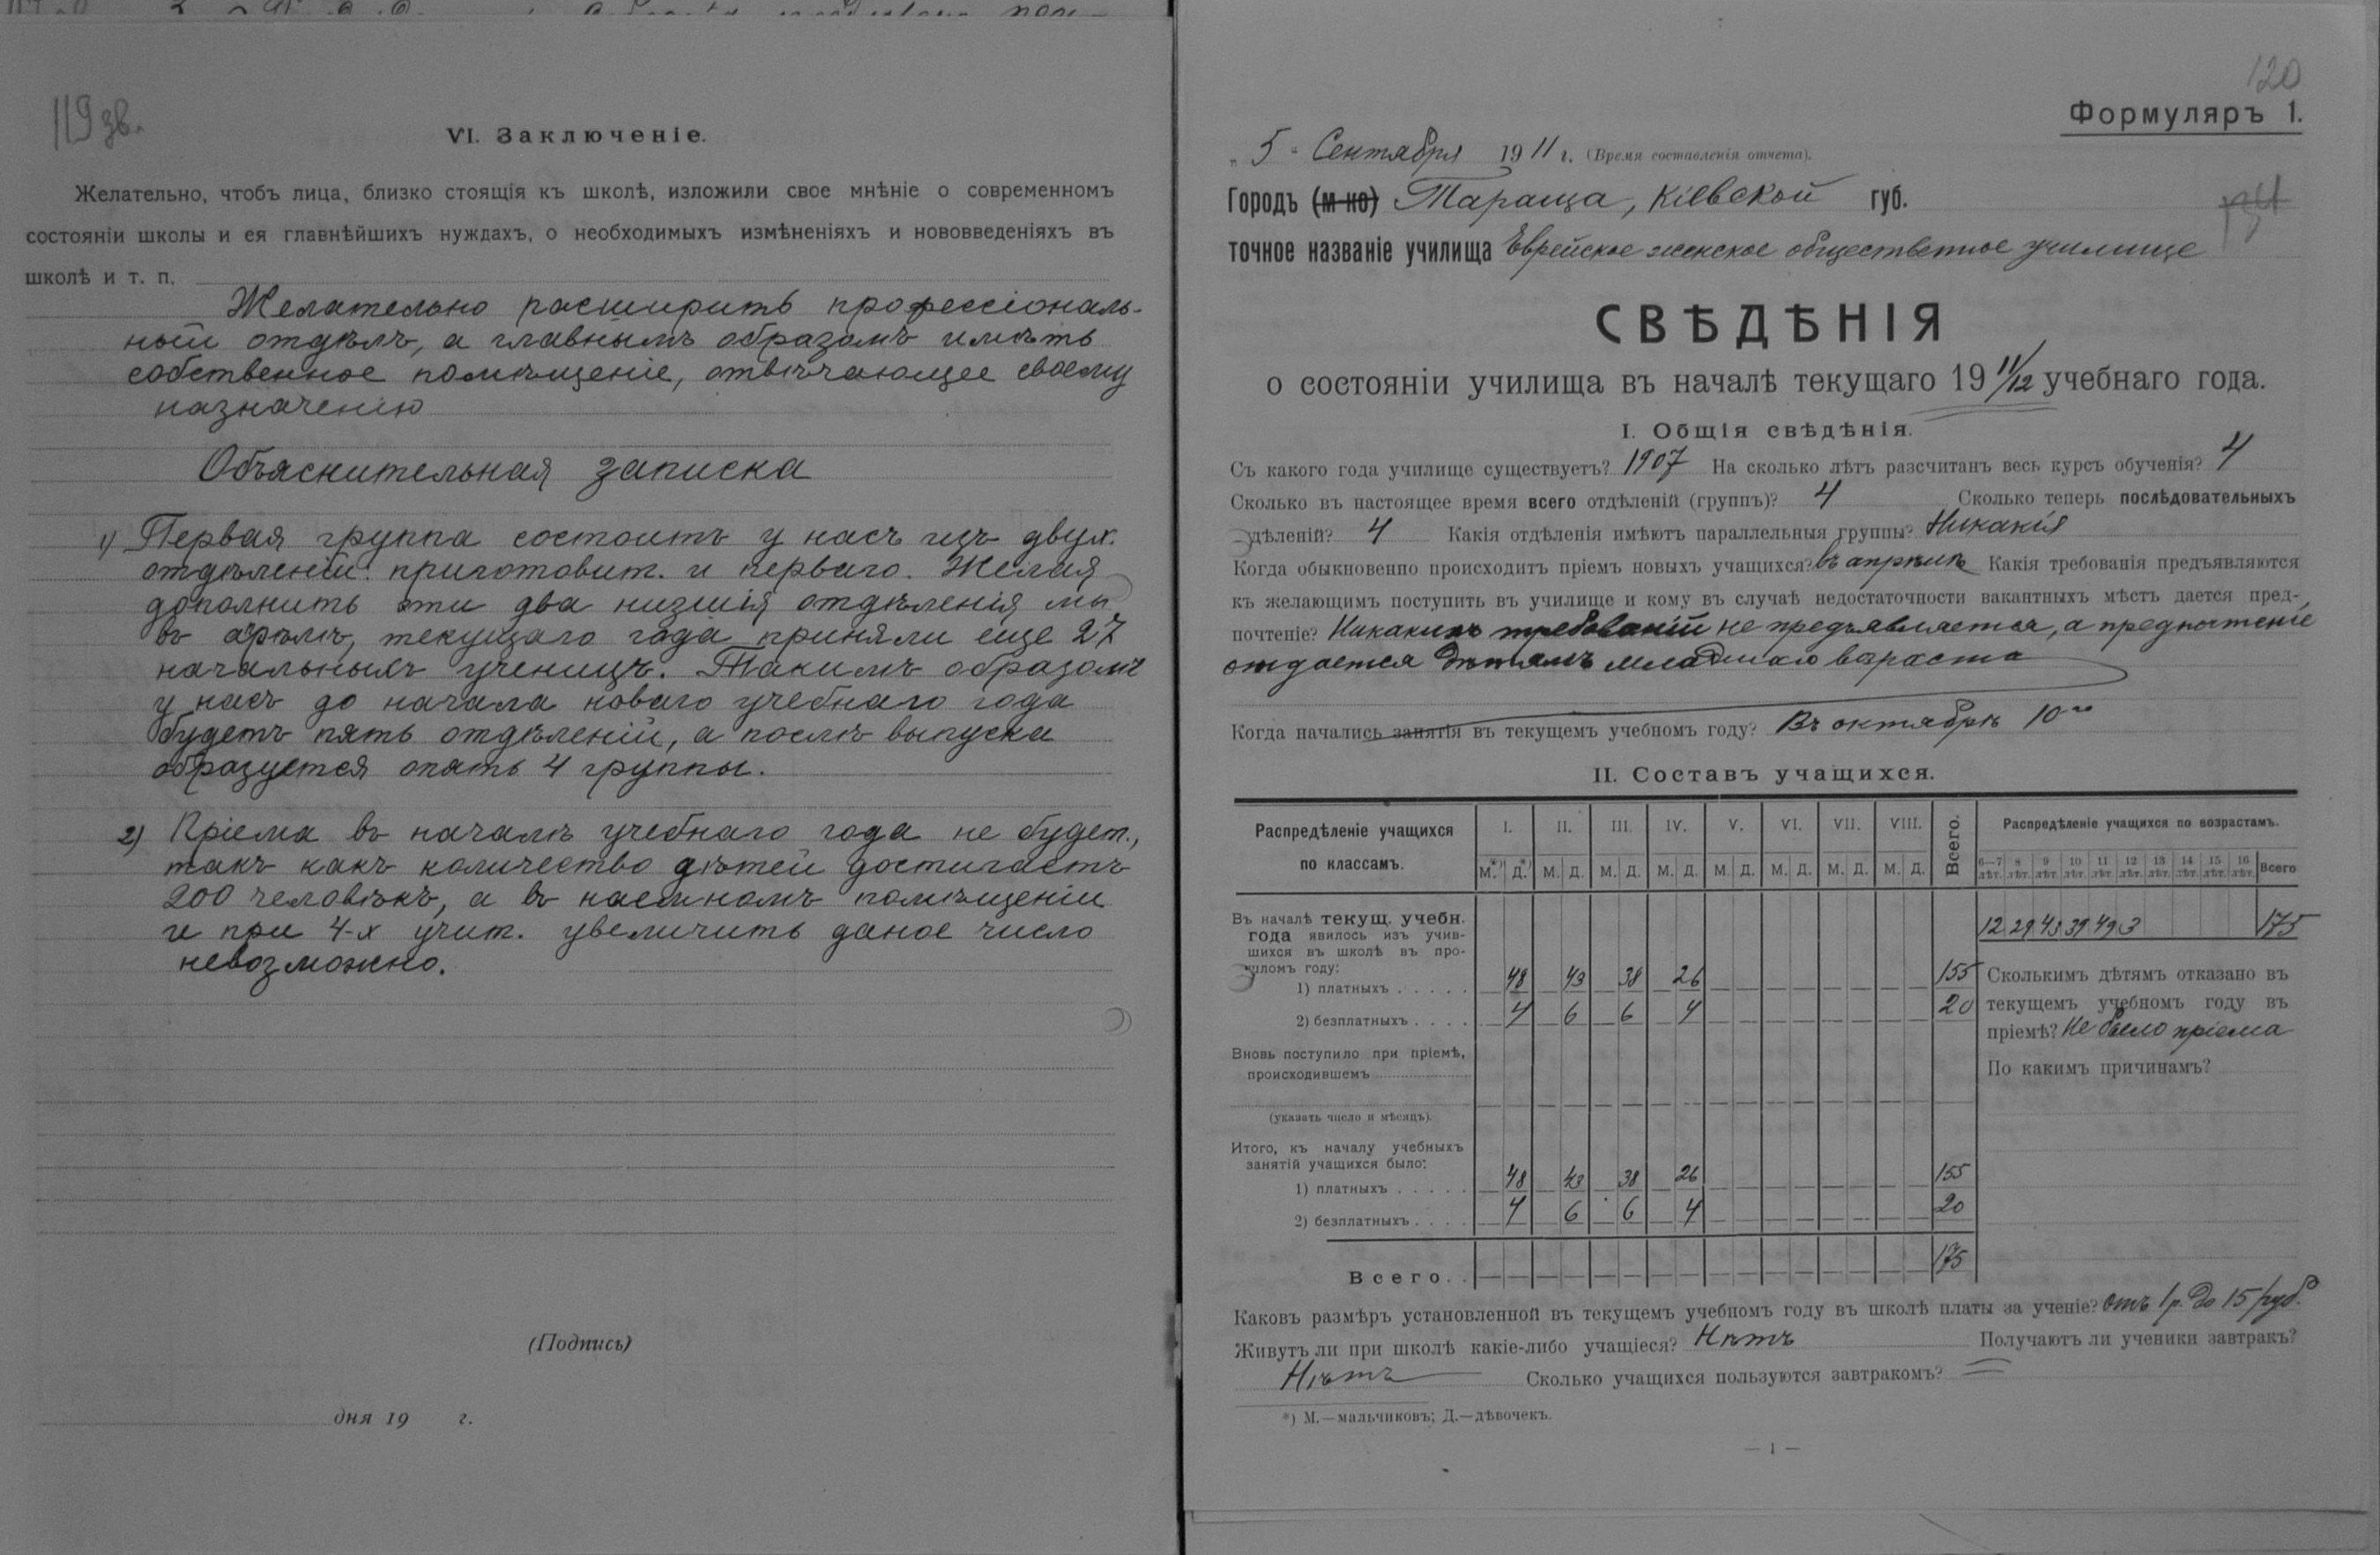 119 зв.
VI. Заключеніе.
Желательно, чтобъ лица, близко стоящія къ школѣ, изложили свое мнѣніе о современномъ
состояніи школы и ея главнѣйшихъ нуждахъ, о необходимыхъ измѣненіяхъ и нововведеніяхъ въ
школѣ и т. п.
Желательно расширить профессіональ-
ный отдѣлъ, а главнымъ образомъ имѣть
собственное помѣщеніе, отвѣчающее своему
назначенію
Объяснительная записка
1) Первая группа состоитъ у насъ изъ двух.
отдѣленій: приготовит. и перваго. Желая
дополнить эти два низшія отдѣленія мы
въ апрѣлѣ, текущаго года приняли еще 27
начальныхъ ученицъ. Такимъ образомъ
у насъ до начала новаго учебнаго года
будетъ пять отдѣленій, а послѣ выпуска
образуется опять 4 группы.
2) Пріема въ началѣ учебнаго года не будет.,
такъ какъ количество дѣтей достигаетъ
200 человѣкъ, а въ наемномъ помѣщеніи
и при 4-х учит. увеличить даное число
невозможно.
(Подпись)
дня 19 г.
120
Формуляръ 1.
„ 5 " Сентября 1911 г. (Время составленія отчета).
Городъ (м-ко) Тараща, Кіевской губ.
точное названіе училища Еврейское женское общественное училище
СВѢДѢНІЯ
о состояніи училища въ началѣ текущаго 19 11/12 учебнаго года.
I. Общія свѣдѣнія.
Съ какого года училище существуетъ? 1907 На сколько лѣтъ разсчитанъ весь курсъ обученія? 4
Сколько въ настоящее время всего отдѣленій (группъ)? 4 Сколько теперь послѣдовательныхъ
дѣленій? 4 Какія отдѣленія имѣютъ параллельныя группы? Никакія
Когда обыкновенно происходитъ пріемъ новыхъ учащихся? въ апрѣлѣ Какія требованія предъявляются
къ желающимъ поступить въ училище и кому въ случаѣ недостаточности вакантныхъ мѣстъ дается пред-
почтеніе? Никакихъ требованій не предъявляется, а предпочтеніе
отдается дѣтямъ младшаго возраста
Когда начались занятія въ текущемъ учебномъ году? Въ октябрѣ 10го
II. Составъ учащихся.
Распредѣленіе учащихся по классамъ. I. II. III. IV. V. VI. VII. VIII. Всего. Распредѣленіе учащихся по возрастамъ.
М.*) Д.*) М. Д. М. Д. М. Д. М. Д. М. Д. М. Д. М. Д. 6—7 лѣт. 8 лѣт. 9 лѣт. 10 лѣт. 11 лѣт. 12 лѣт. 13 лѣт. 14 лѣт. 15 лѣт. 16 лѣт. Всего
Въ началѣ текущ. учебн.
года явилось изъ учив-
шихся въ школѣ въ про-
шломъ году:
12 29 43 39 49 3 175
1) платныхъ . . . . . 48 43 38 26 155
2) безплатныхъ . . . . 4 6 6 4 20
Сколькимъ дѣтямъ отказано въ
текущемъ учебномъ году въ
пріемѣ? Не было пріема
По какимъ причинамъ?
Вновь поступило при пріемѣ,
происходившемъ
(указать число и мѣсяцъ).
Итого, къ началу учебныхъ
занятій учащихся было:
1) платныхъ . . . . . 48 43 38 26 155
2) безплатныхъ . . . . 4 6 6 4 20
Всего. . 175
Каковъ размѣръ установленной въ текущемъ учебномъ году въ школѣ платы за ученіе? Отъ 1 р. до 15 руб.
Живутъ ли при школѣ какіе-либо учащіеся? Нѣтъ Получаютъ ли ученики завтракъ?
Нѣтъ Сколько учащихся пользуются завтракомъ? =
*) М.—мальчиковъ; Д.—дѣвочекъ.
— 1 —